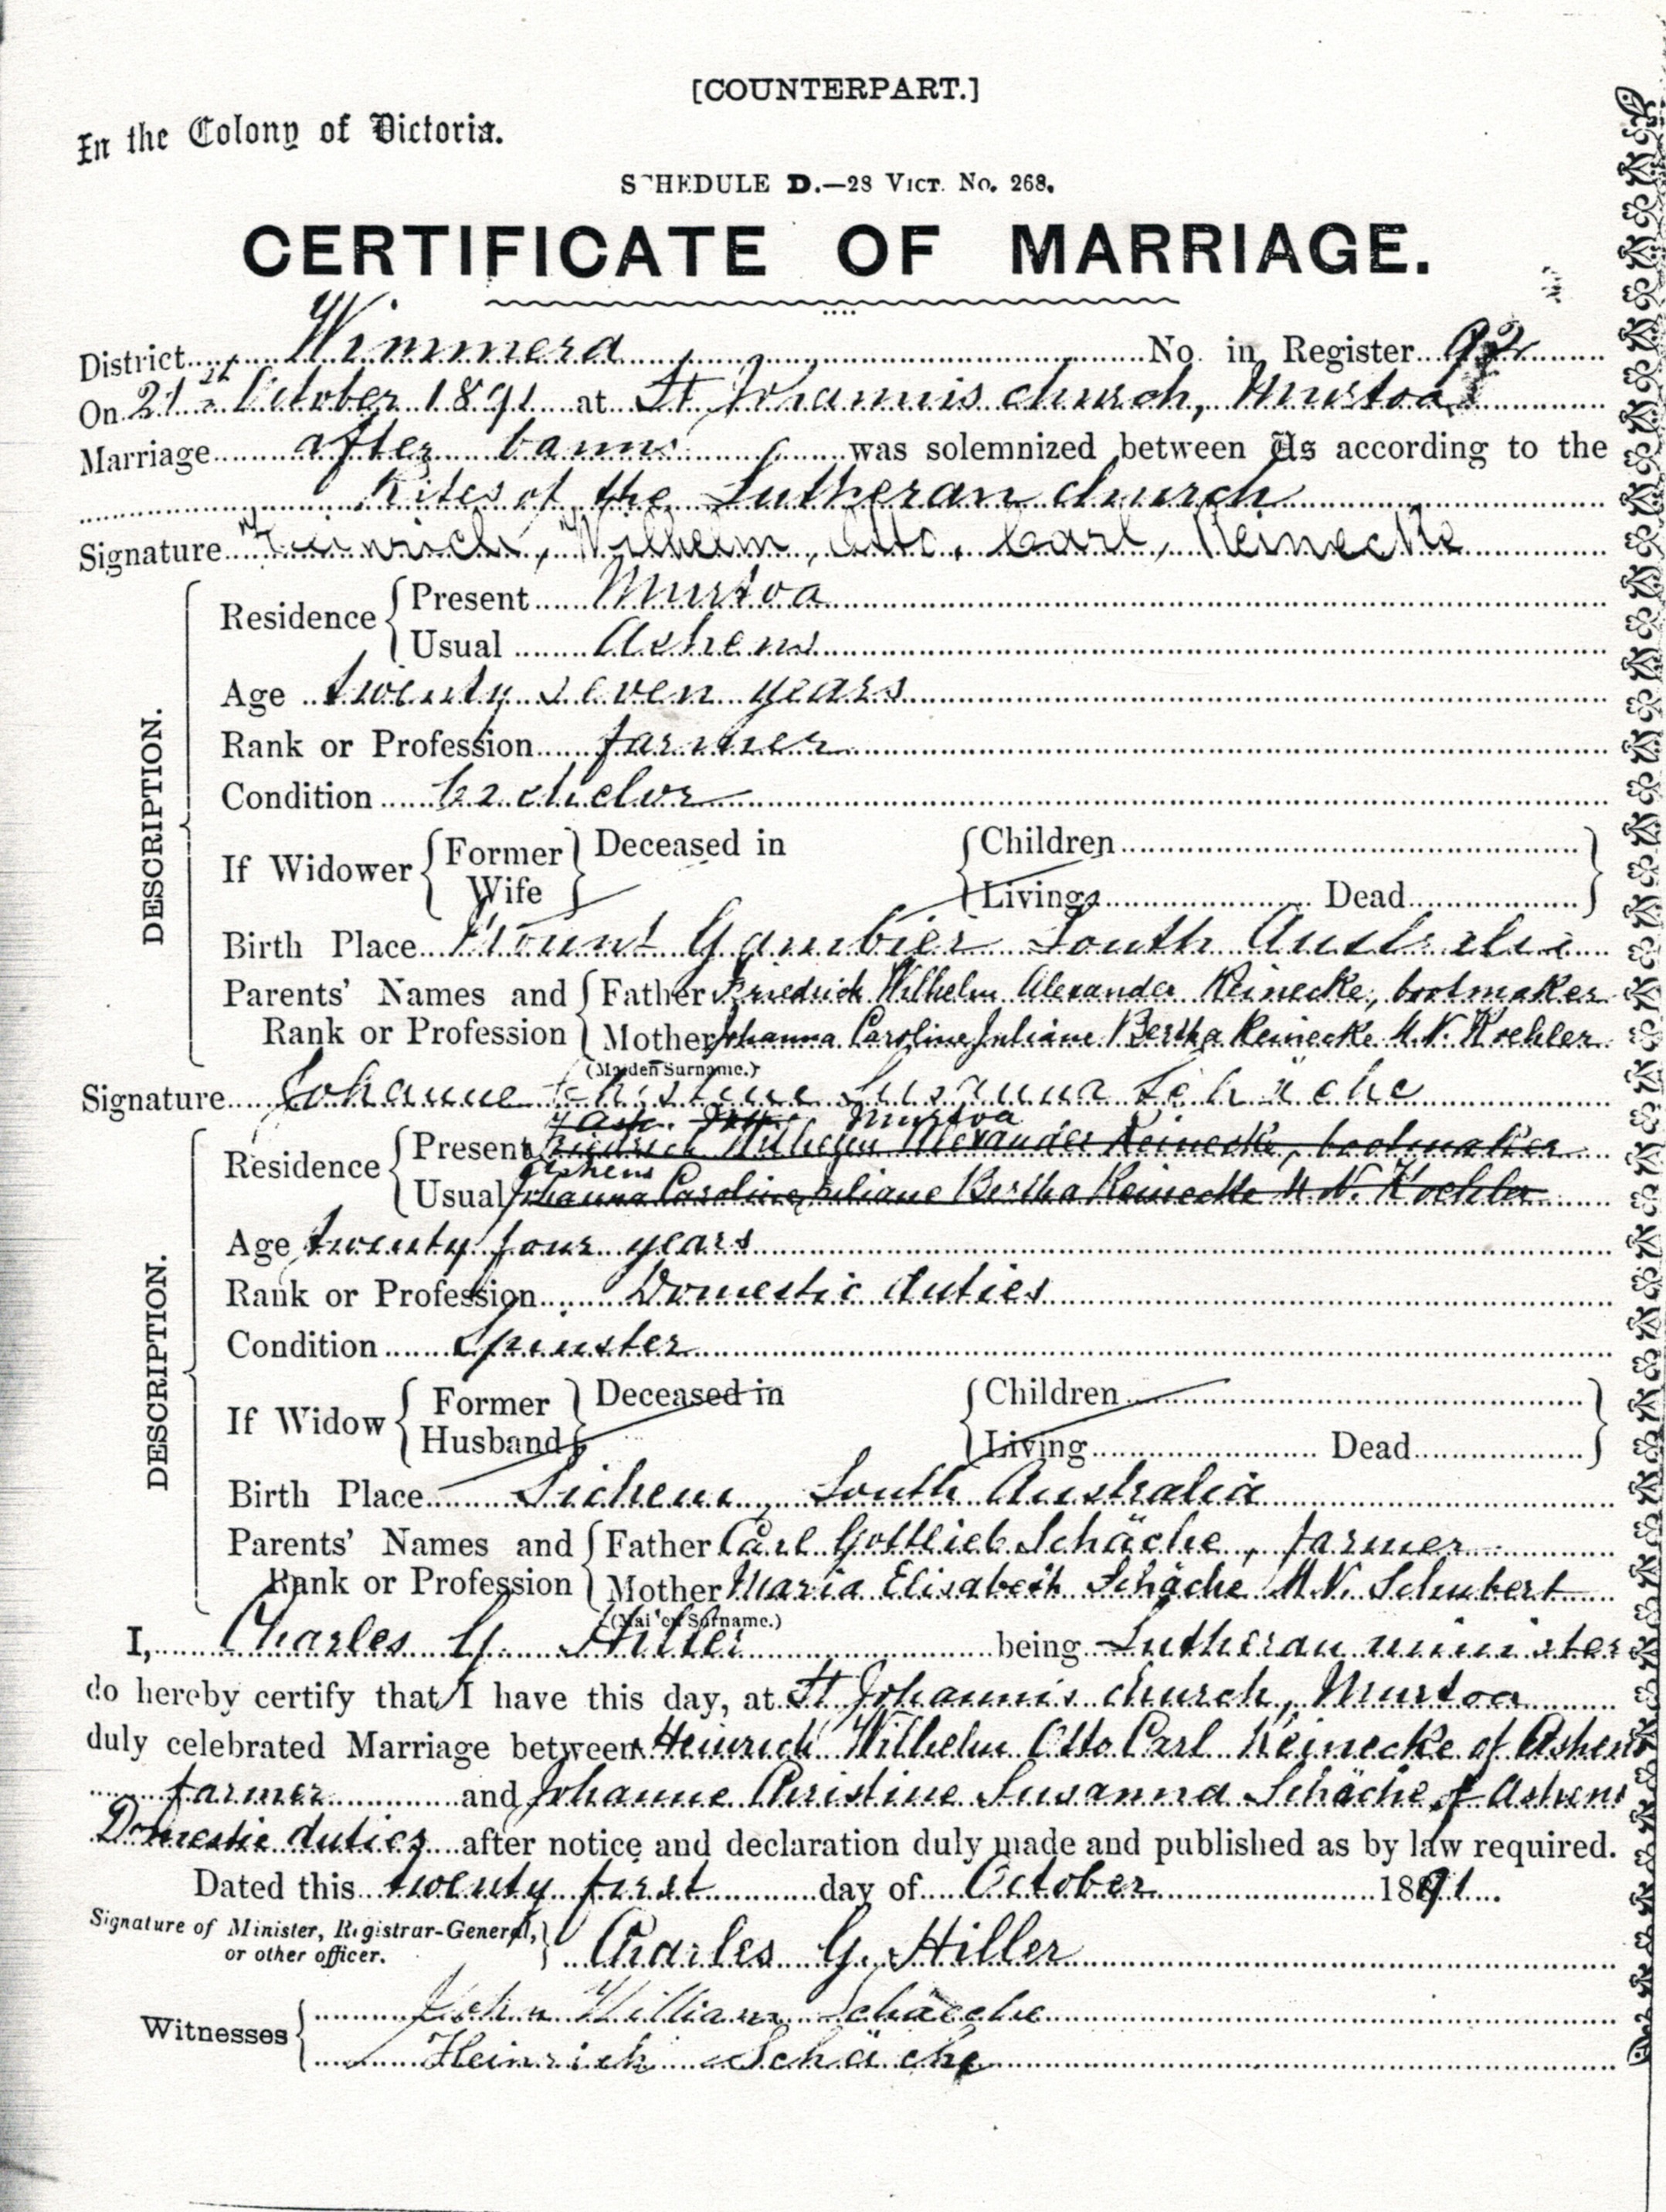 [COUNTERPART.]
In the Colony of Victoria.
SCHEDULE D.—28 VICT. No. 268.
CERTIFICATE OF MARRIAGE.
District Wimmera No. in Register 92
On 21st October 1891 at St Johannis church, Murtoa
Marriage after banns was solemnized between Us according to the
Rites of the Lutheran church
Signature Heinrich, Wilhelm, Otto, Carl, Reinecke
DESCRIPTION.
Residence { Present Murtoa
Usual Ashens
Age twenty seven years
Rank or Profession farmer
Condition bachelor
If Widower { Former Wife } Deceased in { Children
Living Dead }
Birth Place Mount Gambier South Australia
Parents' Names and Rank or Profession { Father Friedrich Wilhelm Alexander Reinecke, bootmaker
Mother Johanna Caroline Juliane Bertha Reinecke M.N. Koehler
(Maiden Surname.)
Signature Johanne Christine Susanna Schäche
DESCRIPTION.
Murtoa
Residence { Present Friedrich Wilhelm Alexander Reinecke, bootmaker
Ashens
Usual Johanna Caroline Juliane Bertha Reinecke M.N. Koehler
Age twenty four years
Rank or Profession Domestic duties
Condition Spinster
If Widow { Former Husband } Deceased in { Children
Living Dead }
Birth Place Sichem, South Australia
Parents' Names and Rank or Profession { Father Carl Gottlieb Schäche, farmer
Mother Maria Elisabeth Schäche M.N. Schubert
(Maiden Surname.)
I, Charles G. Hiller being Lutheran minister
do hereby certify that I have this day, at St Johannis church, Murtoa
duly celebrated Marriage between Heinrich Wilhelm Otto Carl Reinecke of Ashens
farmer and Johanne Christine Susanna Schäche of Ashens
Domestic duties after notice and declaration duly made and published as by law required.
Dated this twenty first day of October 1891
Signature of Minister, Registrar-General, or other officer. } Charles G. Hiller
Witnesses { John William Schaeche
Heinrich Schäche